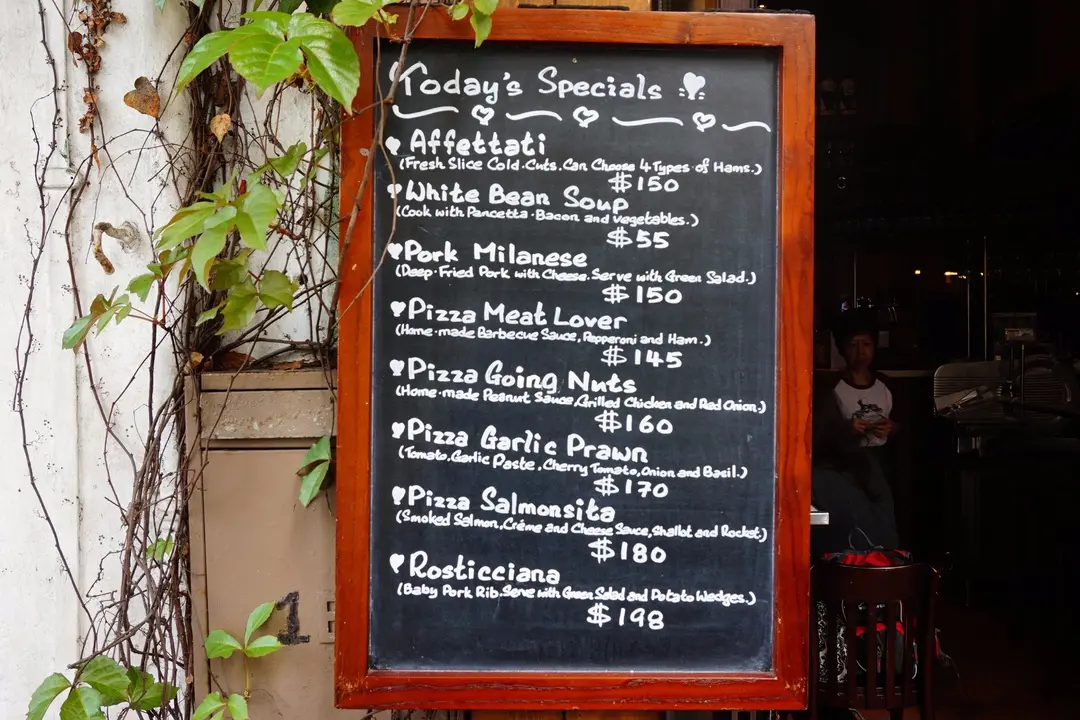 Today's Specials
Affettati
(Fresh Slice Cold·Cuts. Can Choose 4 Types of Hams.)
$150
White Bean Soup
(Cook with Pancetta·Bacon and vegetables.)
$55
Pork Milanese
(Deep·Fried Pork with Cheese. Serve with Green Salad.)
$150
Pizza Meat Lover
(Home·made Barbecue Sauce, Pepperoni and Ham.)
$145
Pizza Going Nuts
(Home·made Peanut Sauce, Grilled Chicken and Red Onion.)
$160
Pizza Garlic Prawn
(Tomato, Garlic Paste, Cherry Tomato, Onion and Basil.)
$170
Pizza Salmonsita
(Smoked Salmon, Créme and Cheese Sauce, Shallot and Rocket.)
$180
Rosticciana
(Baby Pork Rib. Serve with Green Salad and Potato Wedges.)
$198
1